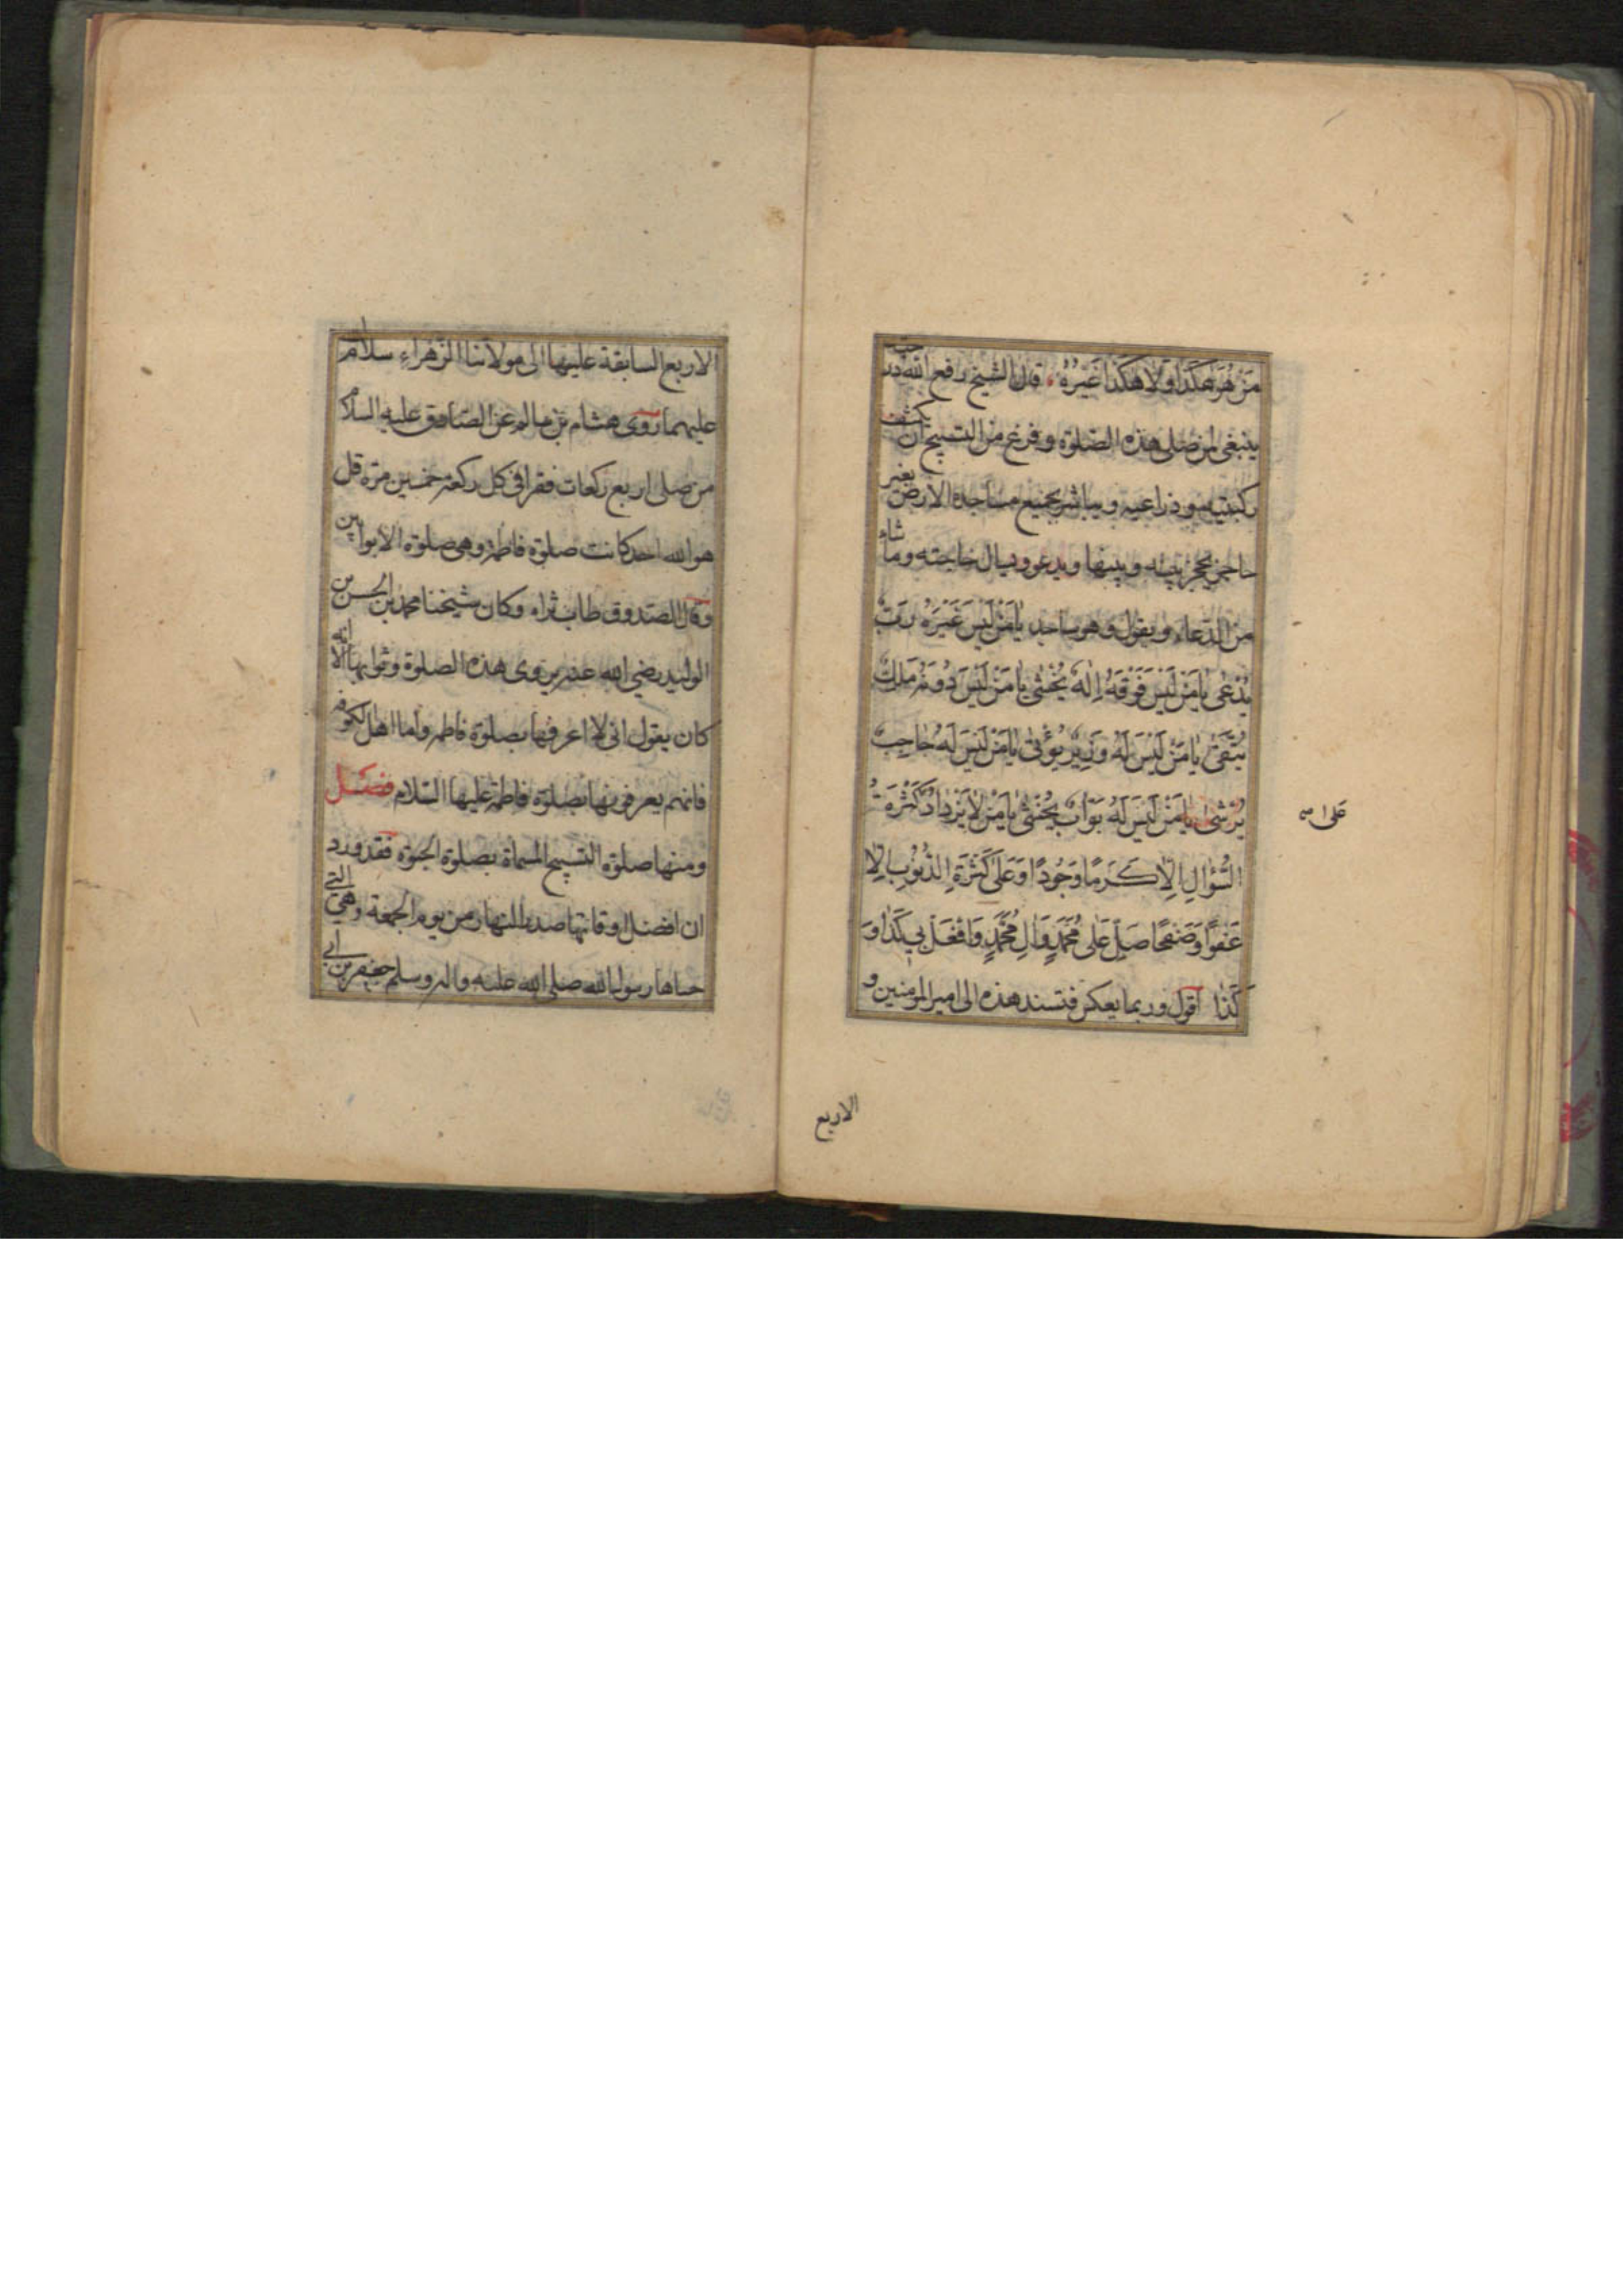 مَنْ هُوَ هٰكَذَا وَلَا هٰكَذَا غَيْرُهُ قال الشيخ رفع الله درجته
ينبغى لمن صلى هذه الصلوة وفرغ من التسبيح ان يكشف
ركبتيه وذراعيه ويباشر بجميع مساجده الارض بغير
حاجز يحجز بينه وبينها ويدعو ويسال حاجته وما شاء
من الدعاء ويقول وهو ساجد يَا مَنْ لَيْسَ غَيْرَهُ رَبٌّ
يُدْعٰى يَا مَنْ لَيْسَ فَوْقَهُ اِلٰهٌ يُخْشٰى يَا مَنْ لَيْسَ دُونَهُ مَلِكٌ
يُتَّقٰى يَا مَنْ لَيْسَ لَهُ وَزِيرٌ يُؤْتٰى يَا مَنْ لَيْسَ لَهُ حَاجِبٌ
يُرْشٰى يَا مَنْ لَيْسَ لَهُ بَوَّابٌ يُغْشٰى يَا مَنْ لَا يَزْدَادُ كَثْرَةُ
السُّؤَالِ اِلَّا كَرَمًا وَجُودًا وَعَلٰى كَثْرَةِ الذُّنُوبِ اِلَّا
عَفْوًا وَصَفْحًا صَلِّ عَلٰى مُحَمَّدٍ وَاٰلِ مُحَمَّدٍ وَافْعَلْ بِى كَذَا وَ
كَذَا اقول وربما يعكس فتسند هذه الى امير المؤمنين و
على
الاربع
الاربع السابقة عليها الى مولاتنا الزهراء سلام
عليهما روى هشام بن سالم عن الصادق عليه السلام
من صلى اربع ركعات فقرا فى كل ركعة خمسين مرة قل
هو الله احد كانت صلوة فاطمة وهى صلوة الاوابين
وقال الصدوق طاب ثراه وكان شيخنا محمد بن الحسن بن
الوليد رضي الله عنه يروى هذه الصلوة وثوابها الا انه
كان يقول انى لا اعرفها بصلوة فاطمة واما اهل الكوفة
فانهم يعرفونها بصلوة فاطمة عليها السلام فصل
ومنها صلوة التسبيح المسماة بصلوة الحبوة فقد ورد
ان افضل اوقاتها صدر النهار من يوم الجمعة وهى التى
حباها رسول الله صلى الله عليه واله وسلم جعفر بن ابى